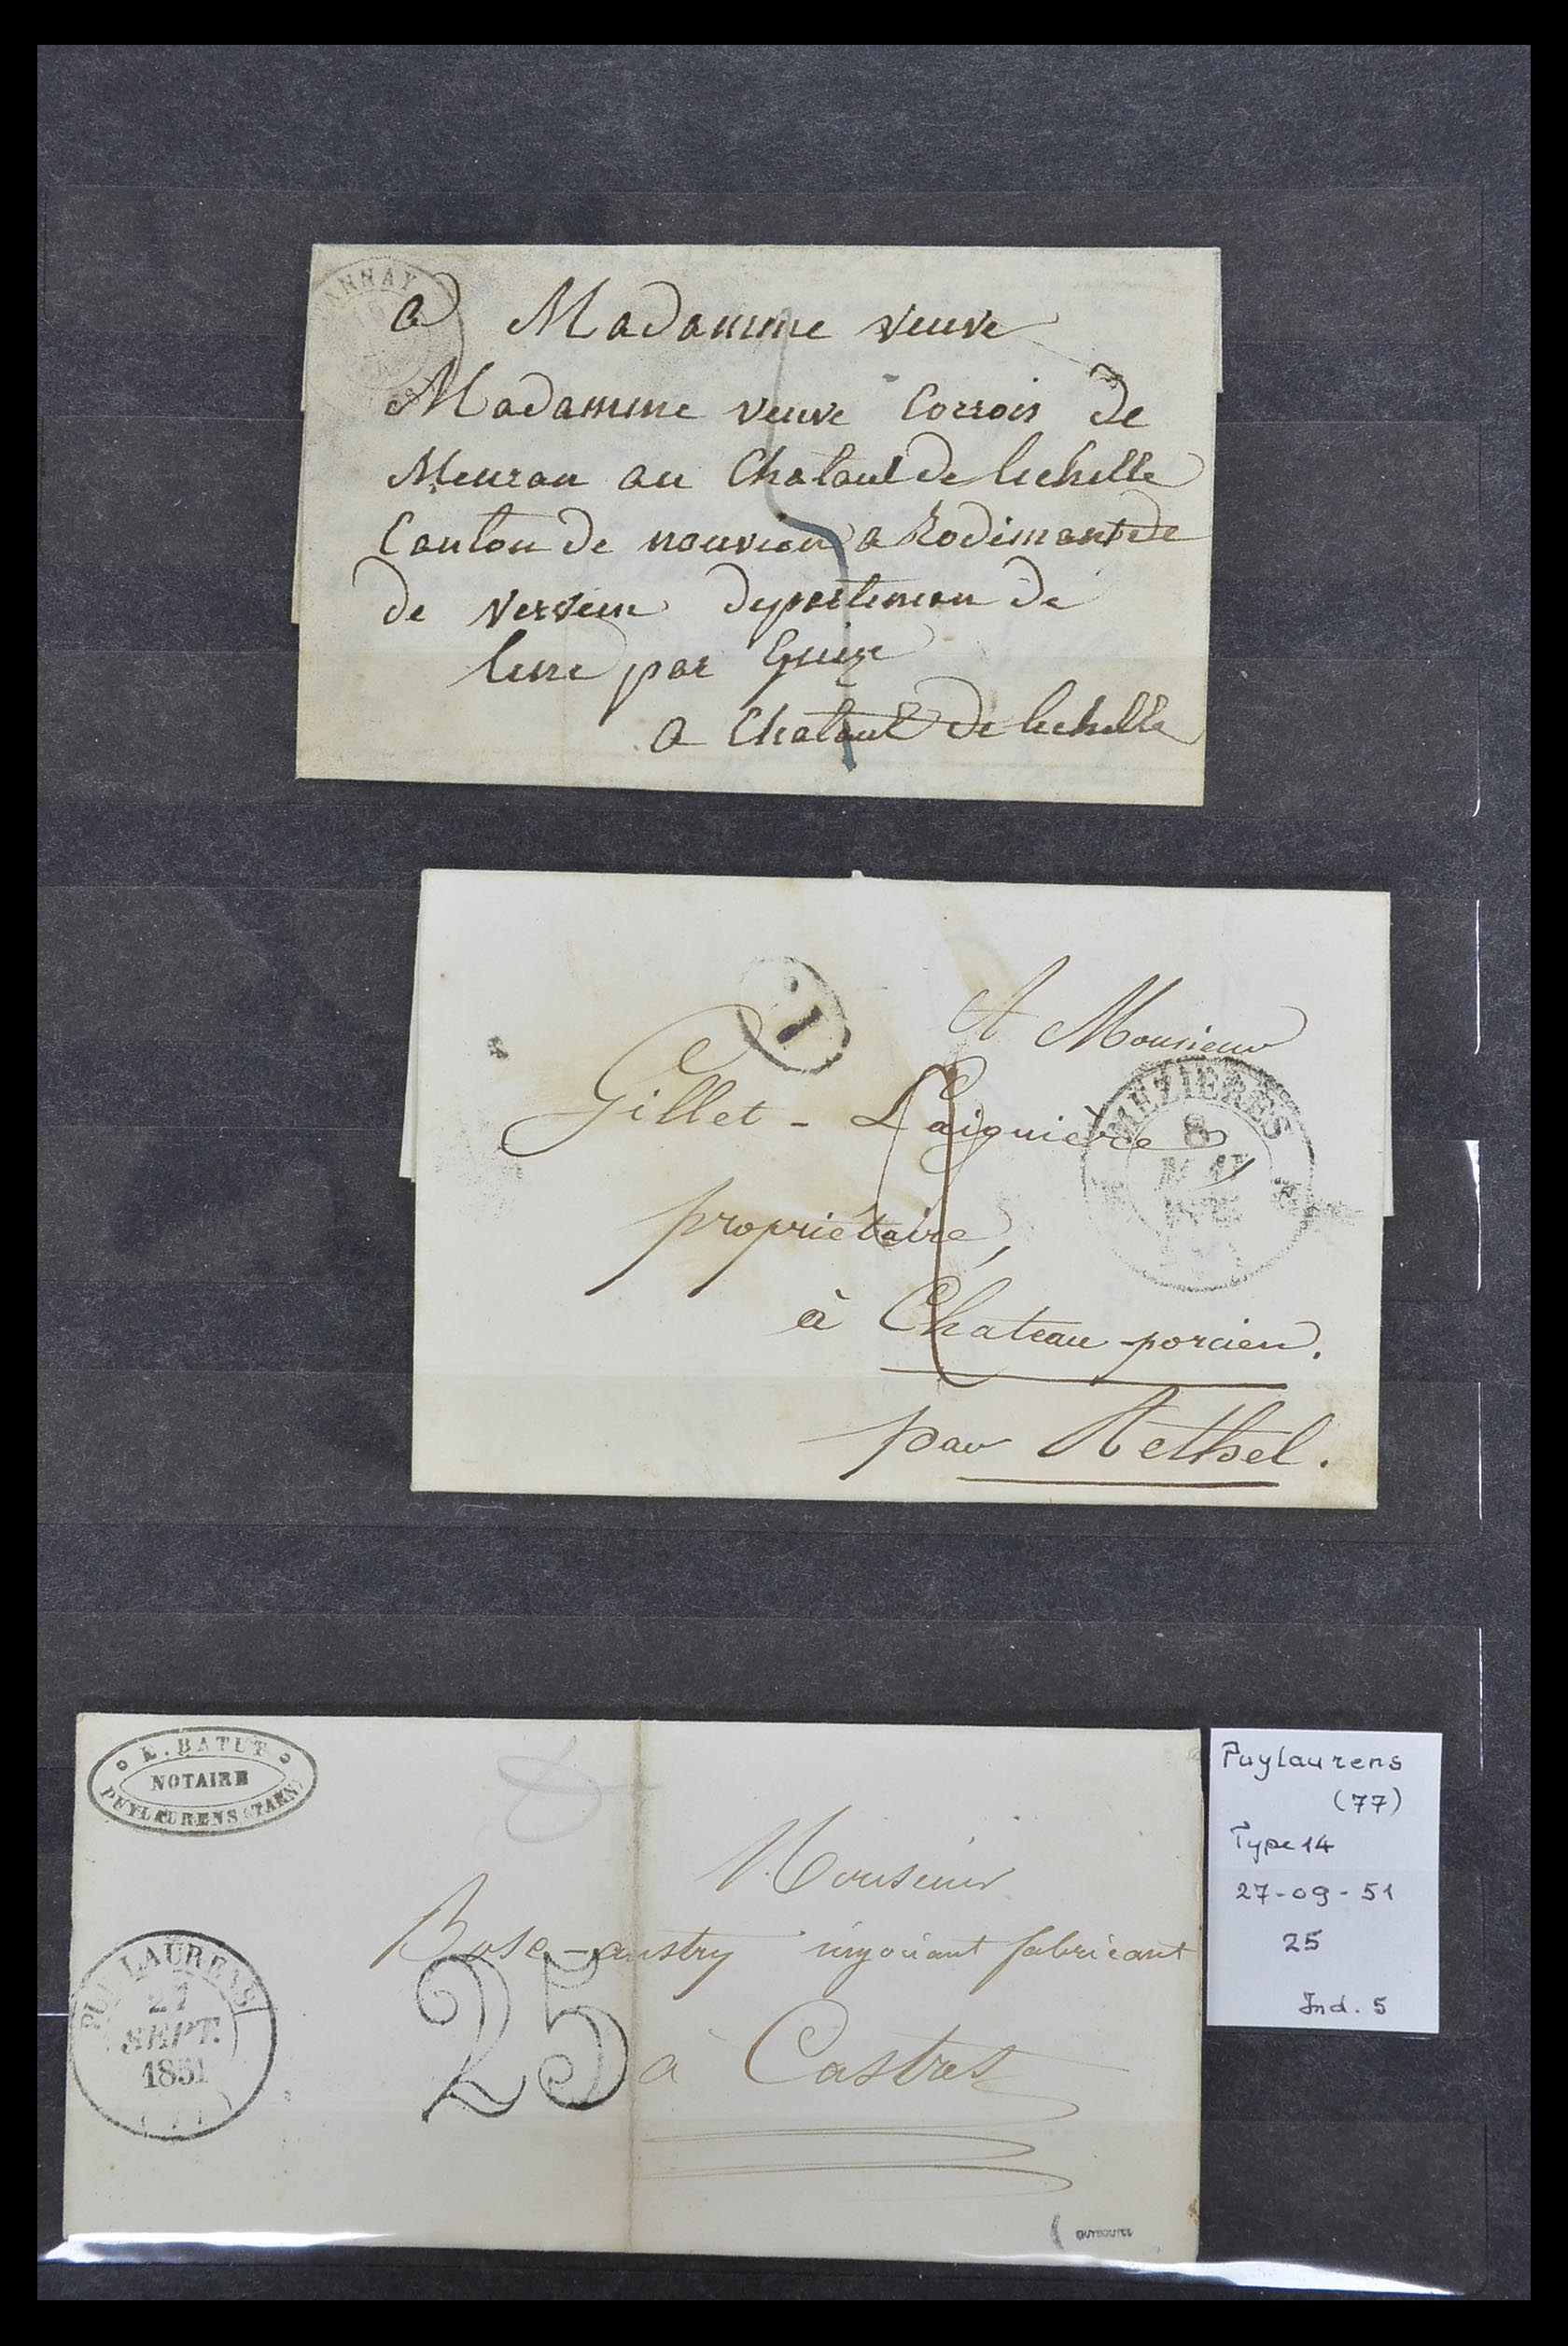 ANNAY
a Madamme veuve
Madamme veuve Corrois de
Meuran au Chataul de lechelle
Canton de nouvion a Rodimant de
de vervein departemen de
lene par Guise
a Chataul de lechelle
1
A Monsieur
Gillet - Laiguière
propriétaire,
à Chateau-porcien.
par Rethel.
MEZIERES
8
MAI
K. BATUT
NOTAIRE
PUYLAURENS (TARN)
Monsieur
negociant fabricant
à Castres
PUYLAURENS
27
SEPT.
1851
25
Puylaurens
(77)
Type 14
27-09-51
25
Ind. 5